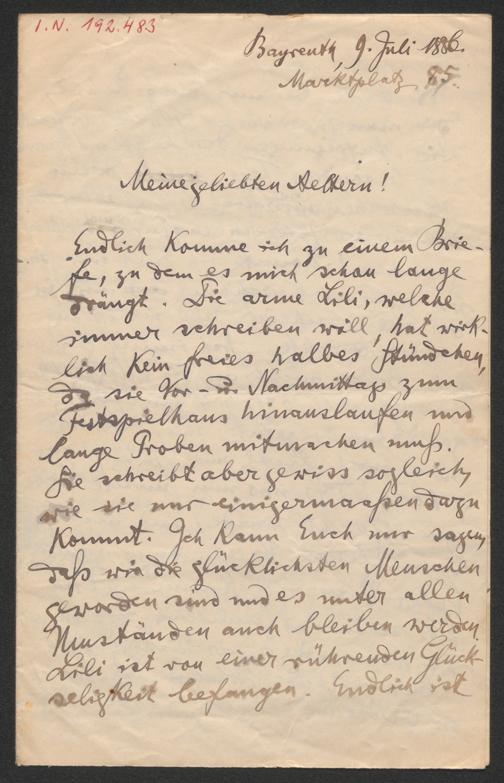 I.N. 192.483
Bayreuth, 9. Juli 1886.
Marktplatz 85.
Meine geliebten Aeltern!
Endlich komme ich zu einem Brie-
fe, zu dem es mich schon lange
drängt. Die arme Lili, welche
immer schreiben will, hat wirk-
lich kein freies halbes Stündchen,
da sie Vor- u. Nachmittags zum
Festspielhaus hinauslaufen und
lange Proben mitmachen muß.
Sie schreibt aber gewiss sogleich,
wie sie nur einigermaassen dazu
kommt. Ich kann Euch nur sagen,
daß wir die glücklichsten Menschen
geworden sind und es unter allen
Umständen auch bleiben werden.
Lili ist von einer rührenden Glück-
seligkeit befangen. Endlich ist